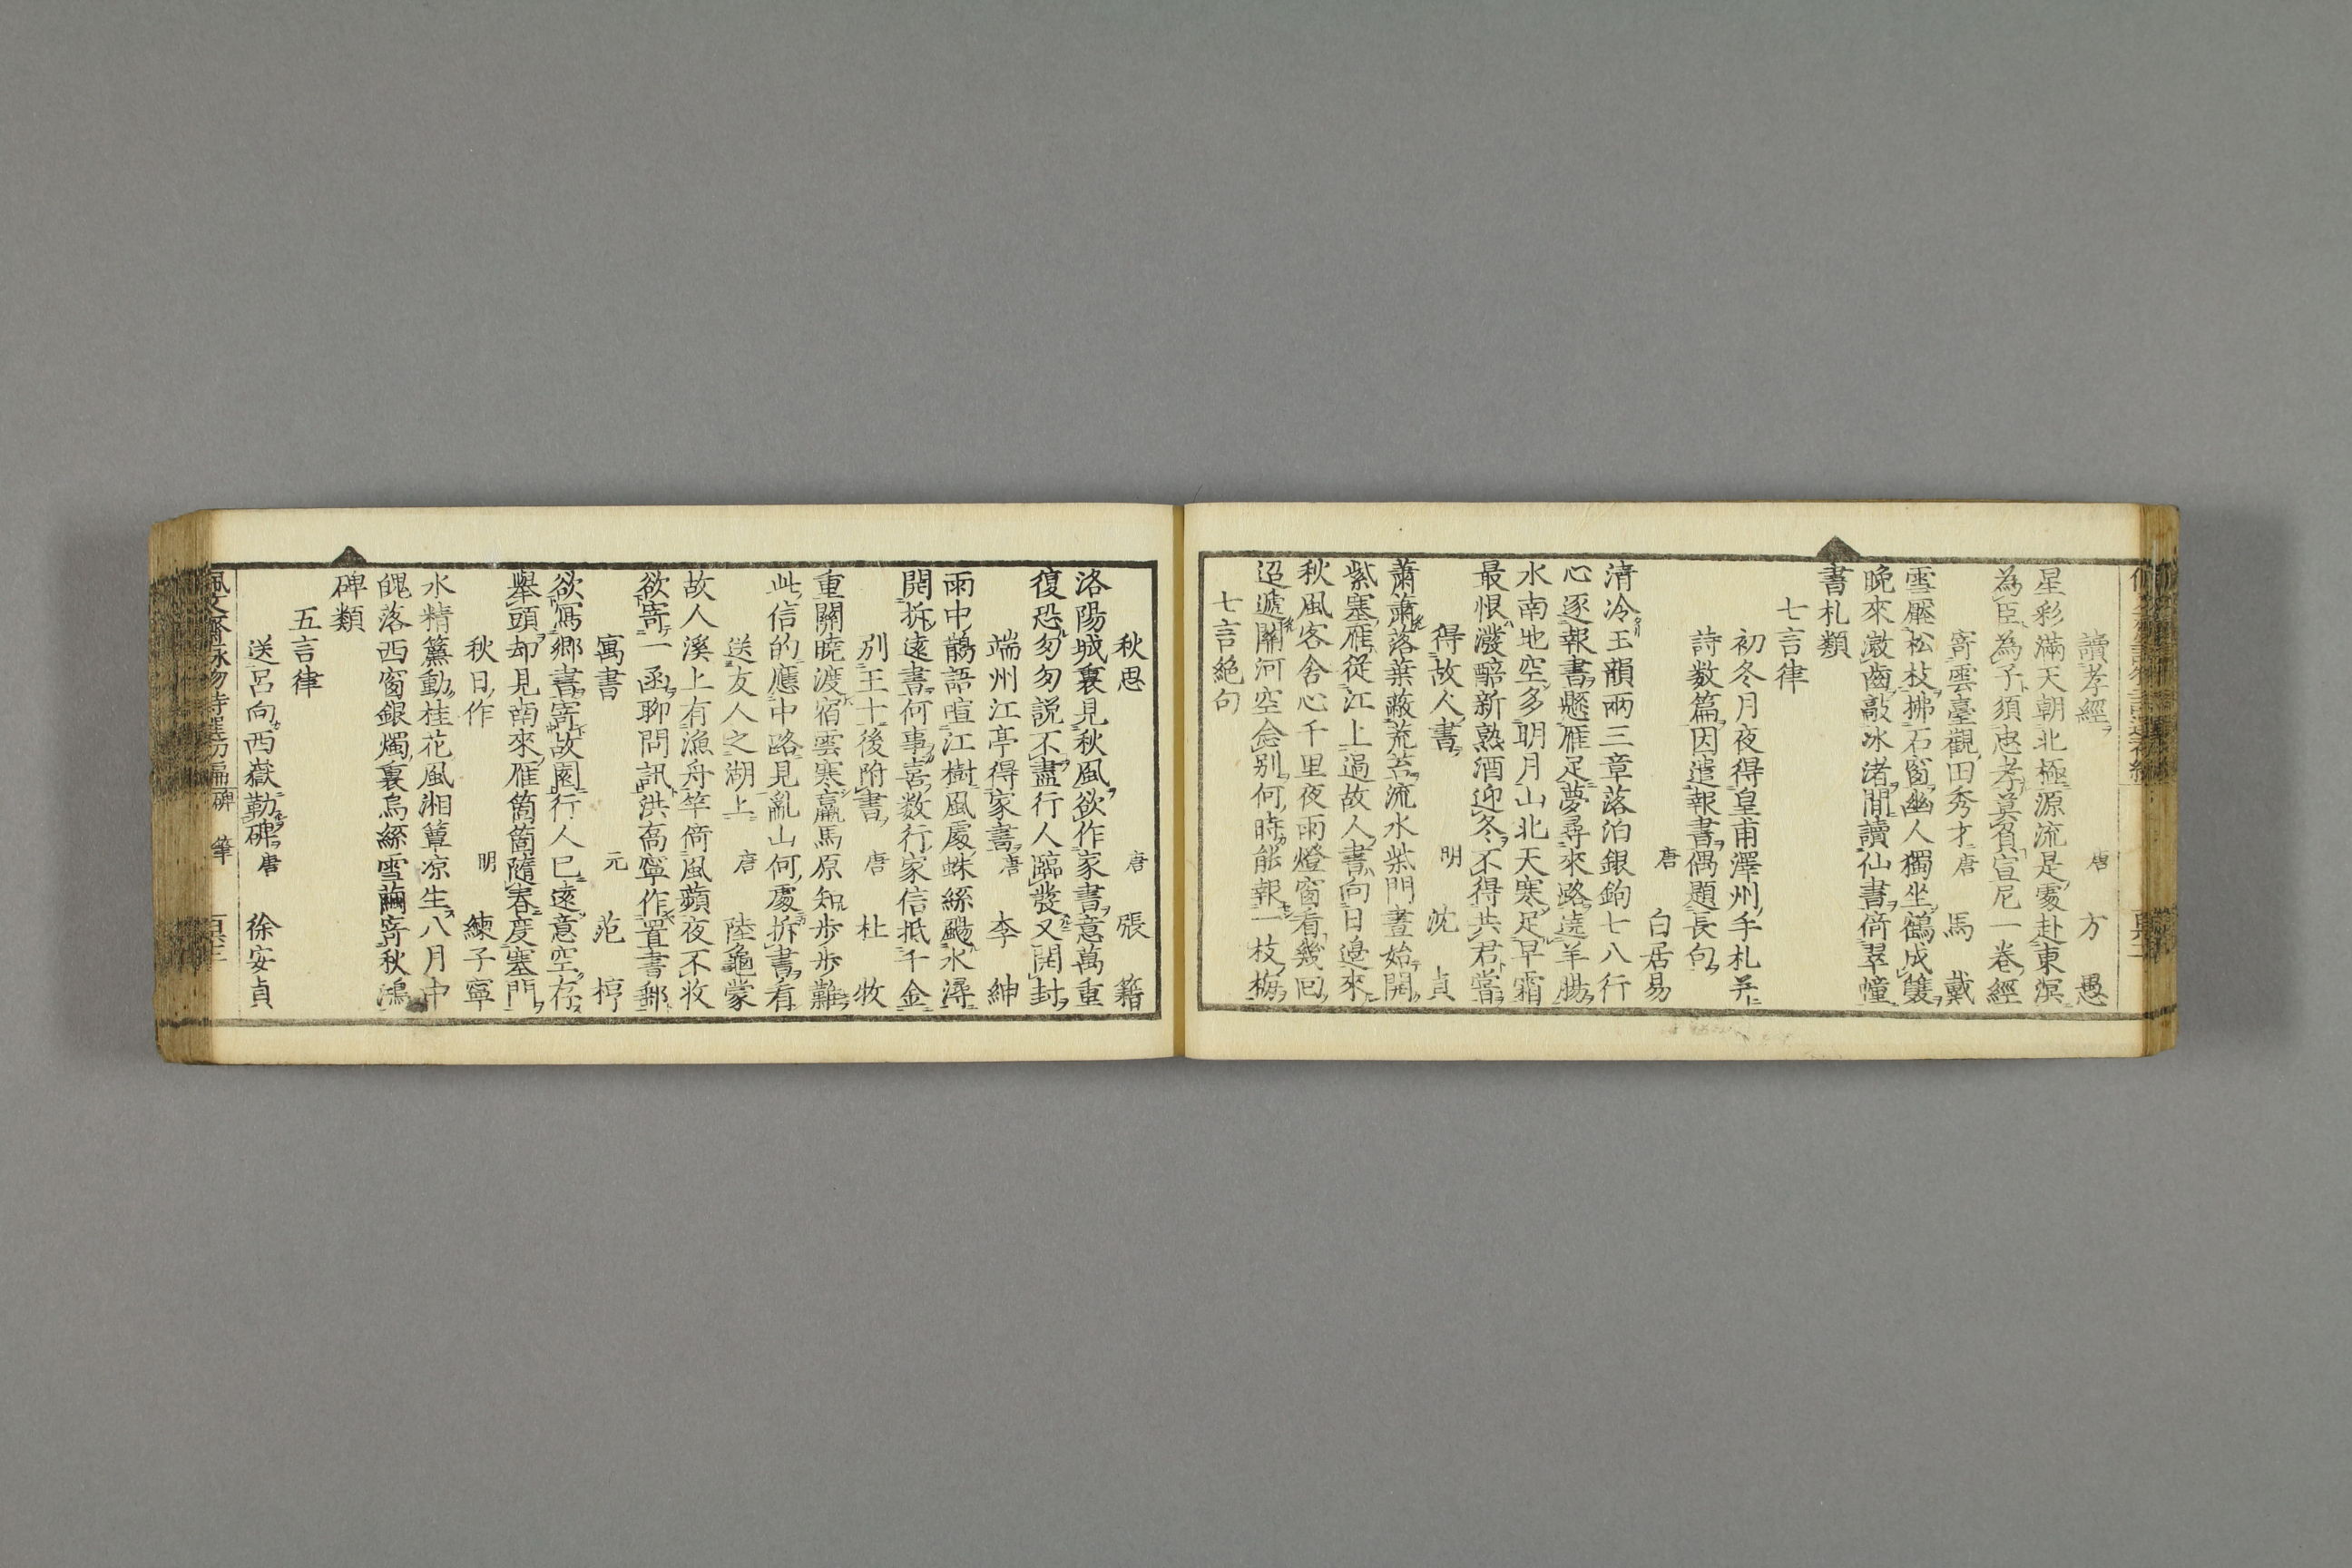 讀孝經 唐 方愚
星彩滿天朝北極源流是處赴東溟
為臣為子須忠孝莫負宣尼一卷經
寄雲臺觀田秀才 唐 馬戴
雪壓松枝拂石窗幽人獨坐鶴成雙
晚來漱齒敲冰渚閒讀仙書倚翠幢
書札類
七言律
初冬月夜得皇甫澤州手札并
詩数篇因遣報書偶題長句
唐 白居易
清冷玉韻兩三章落泊銀鉤七八行
心逐報書懸雁足夢尋來路遶羊腸
水南地空多明月山北天寒足早霜
最恨潑醅新熟酒迎冬不得共君嘗
得故人書 明 沈貞
蕭蕭落葉蔽荒苔流水柴門晝始開
紫塞雁從江上過故人書向日邊來
秋風客舍心千里夜雨燈窗看幾回
迢遞關河空念别何時能報一枝梅
七言絕句
秋思 唐 張籍
洛陽城裏見秋風欲作家書意萬重
復恐匆匆説不盡行人臨發又開封
端州江亭得家書 唐 李紳
雨中鵲語喧江樹風處蛛絲颺水潯
開拆遠書何事喜数行家信抵千金
别王十後附書 唐 杜牧
重關曉渡宿雲寒羸馬原知步步難
此信的應中路見亂山何處拆書看
送友人之湖上 唐 陸龜蒙
故人溪上有漁舟竿倚風蘋夜不收
欲寄一函聊問訊洪喬寧作置書郵
寓書 元 范梈
欲寫鄉書寄故園行人已遠意空存
舉頭却見南來雁箇箇隨春度塞門
秋日作 明 練子寧
水精簾動桂花風湘簟凉生八月中
魄落西窗銀燭裏烏絲雪繭寄秋鴻
碑類
五言律
送呂向西嶽勒碑 唐 徐安貞
佩文齋詠物詩選 碑 筆